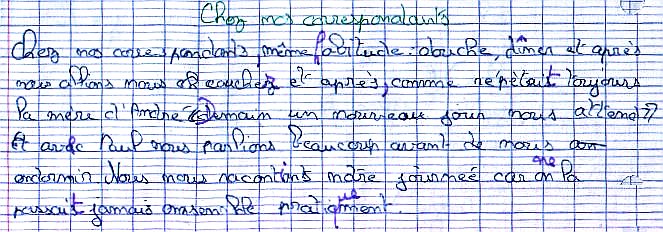 Chez nos correspondants
Chez nos correspondants, même habitude : douche, dîner et après
nous allions nous coucher et après, comme répétait toujours
la mère d'André « Demain un nouveau jour nous attend »
Et avec Paul nous parlions beaucoup avant de nous
endormir Nous nous racontions notre journeé car on ne la
passait jamais ensemble pratiquement.